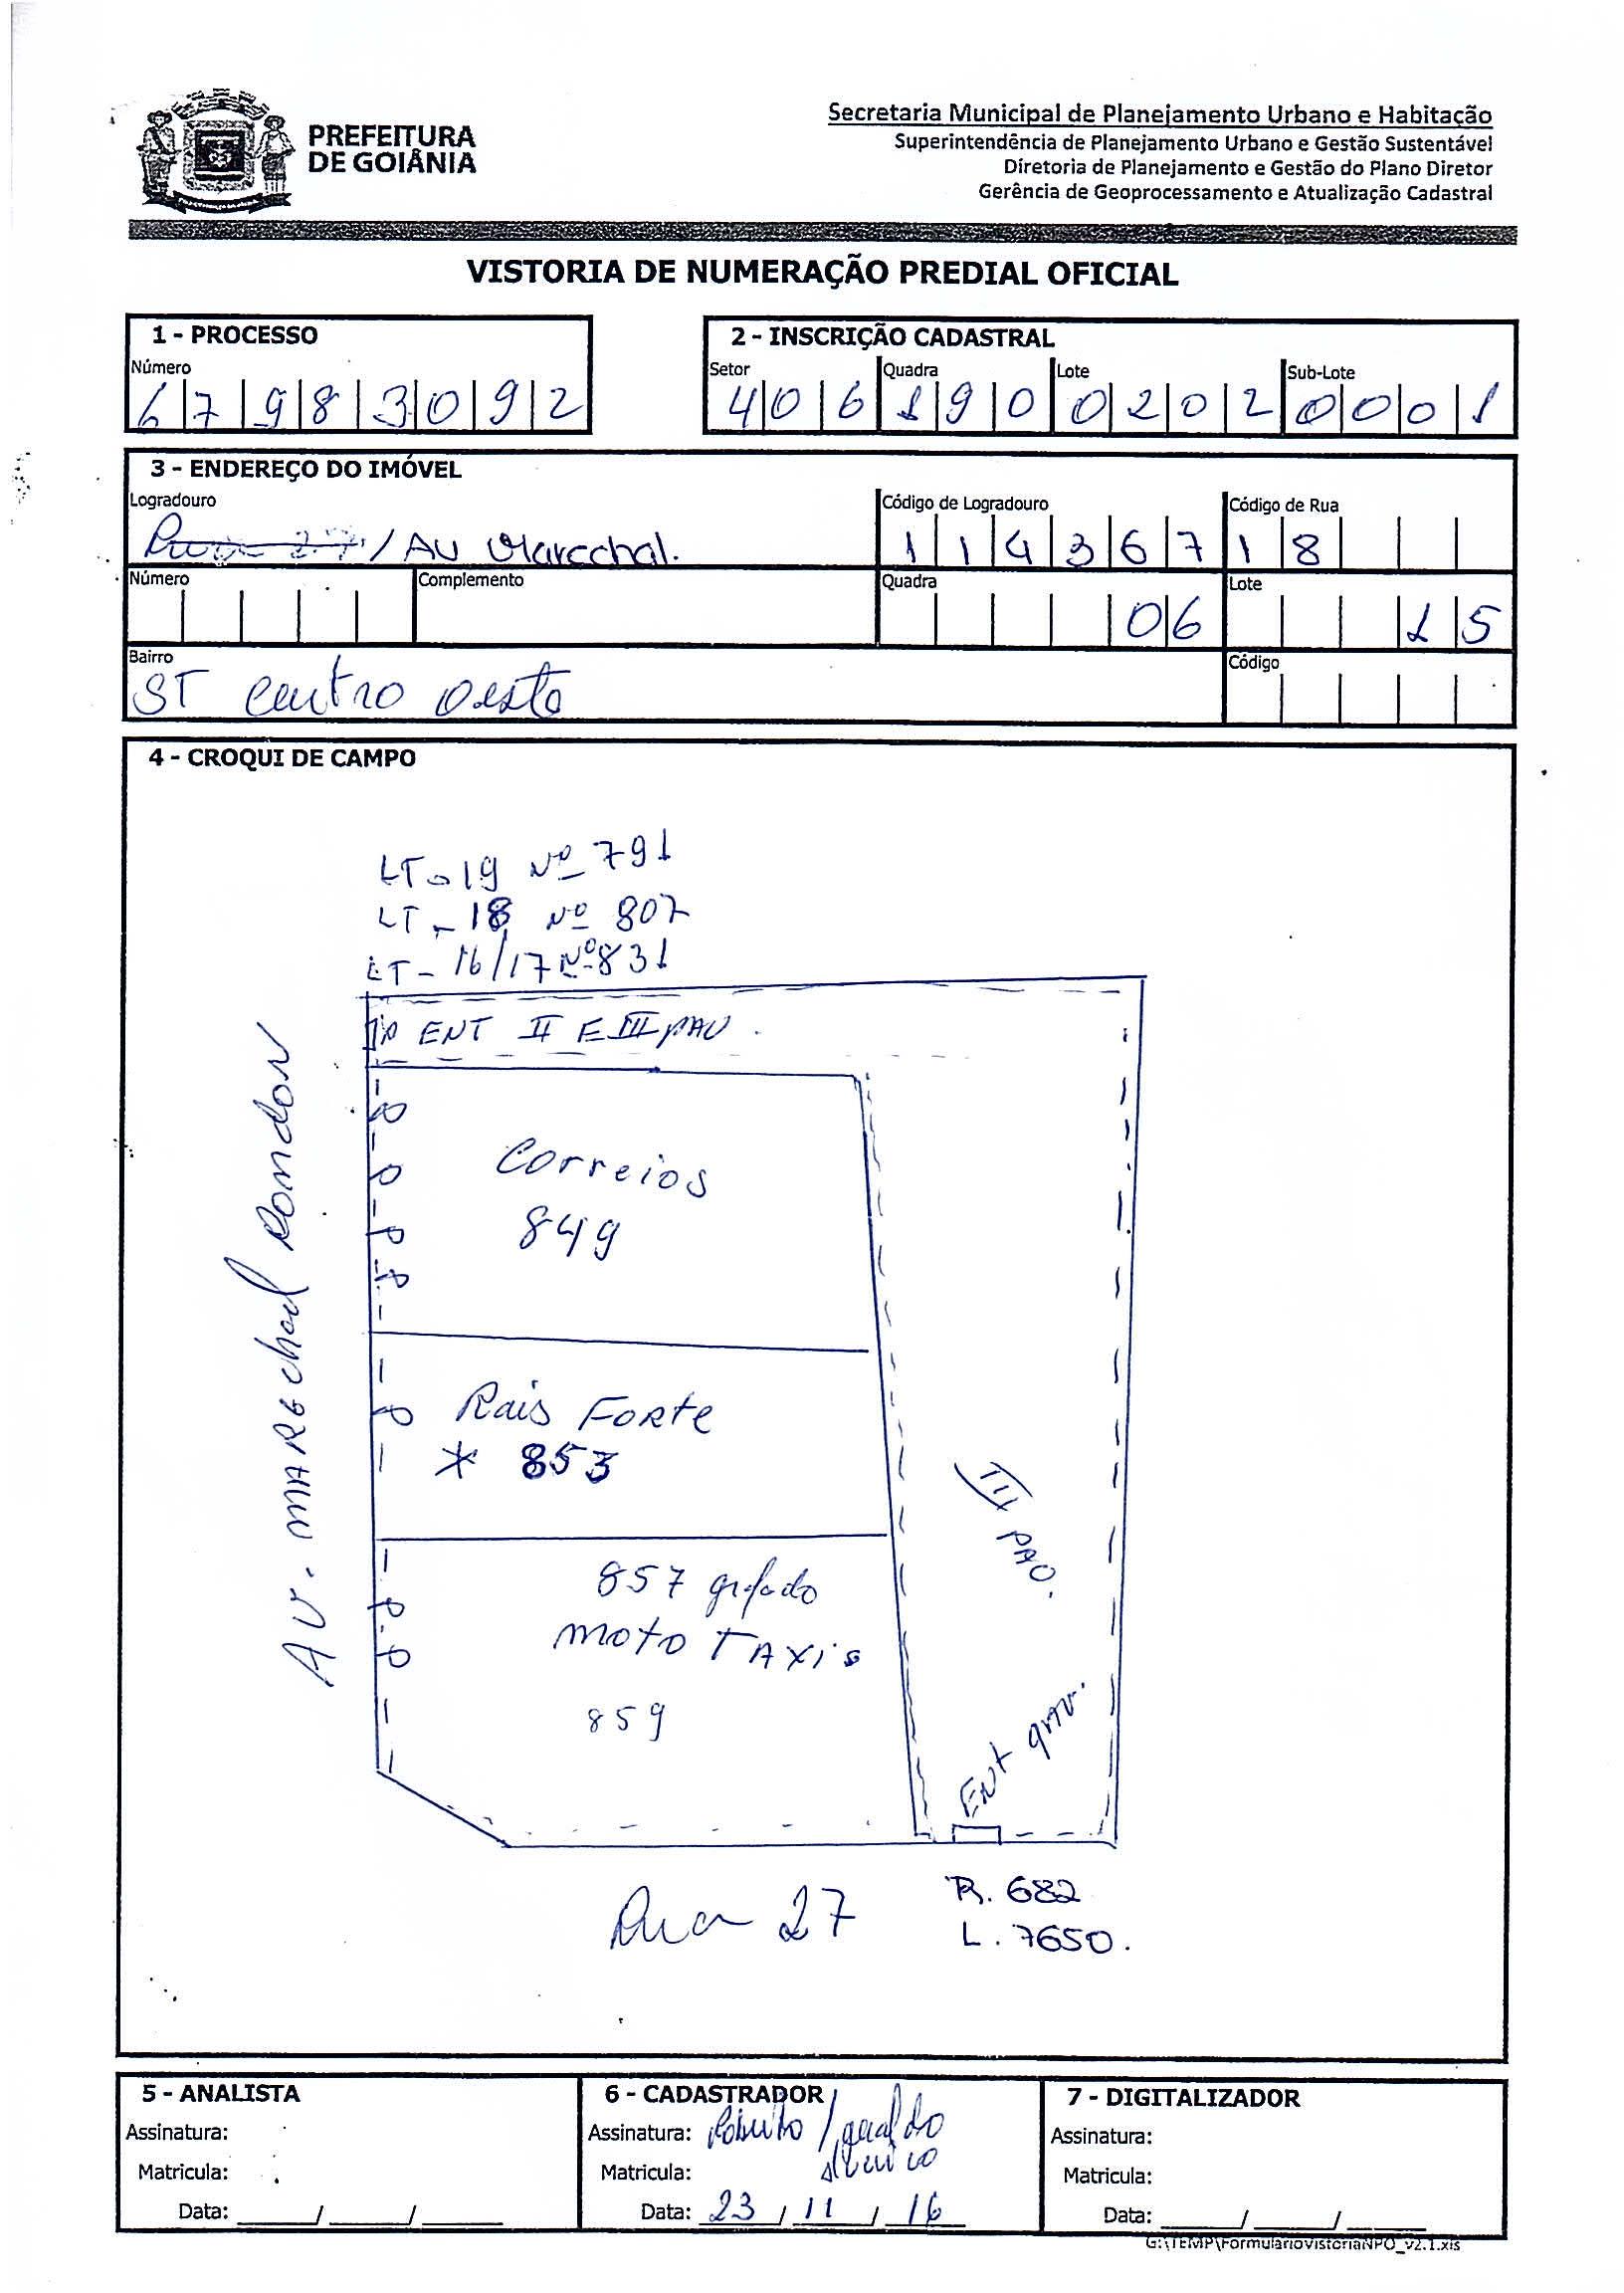 PREFEITURA
DE GOIÂNIA
Secretaria Municipal de Planejamento Urbano e Habitação
Superintendência de Planejamento Urbano e Gestão Sustentável
Diretoria de Planejamento e Gestão do Plano Diretor
Gerência de Geoprocessamento e Atualização Cadastral
VISTORIA DE NUMERAÇÃO PREDIAL OFICIAL
1 - PROCESSO
Número
67983092
2 - INSCRIÇÃO CADASTRAL
Setor Quadra Lote Sub-Lote
406 190 0202 0001
3 - ENDEREÇO DO IMÓVEL
Logradouro Código de Logradouro Código de Rua
Rua 27 / AU Marechal. 114367 18
Número Complemento Quadra Lote
06 15
Bairro Código
ST Centro Oeste
4 - CROQUI DE CAMPO
LT - 19 Nº 791
LT - 18 Nº 807
LT - 16/17 Nº 831
ENT II E III PAU.
AV. MARECHAL RONDON
Correios
849
Rais FORTE
* 853
III PAU.
857 grafado
moto TAXIS
859
ENT grav.
Rua 27
R. 682
L. 7650.
5 - ANALISTA
Assinatura:
Matricula:
Data: / /
6 - CADASTRADOR
Assinatura: Roberto / geraldo
Matricula:
Data: 23 / 11 / 16
7 - DIGITALIZADOR
Assinatura:
Matricula:
Data: / /
G:\TEMP\FormularioVistoriaNPO_v2.1.xls